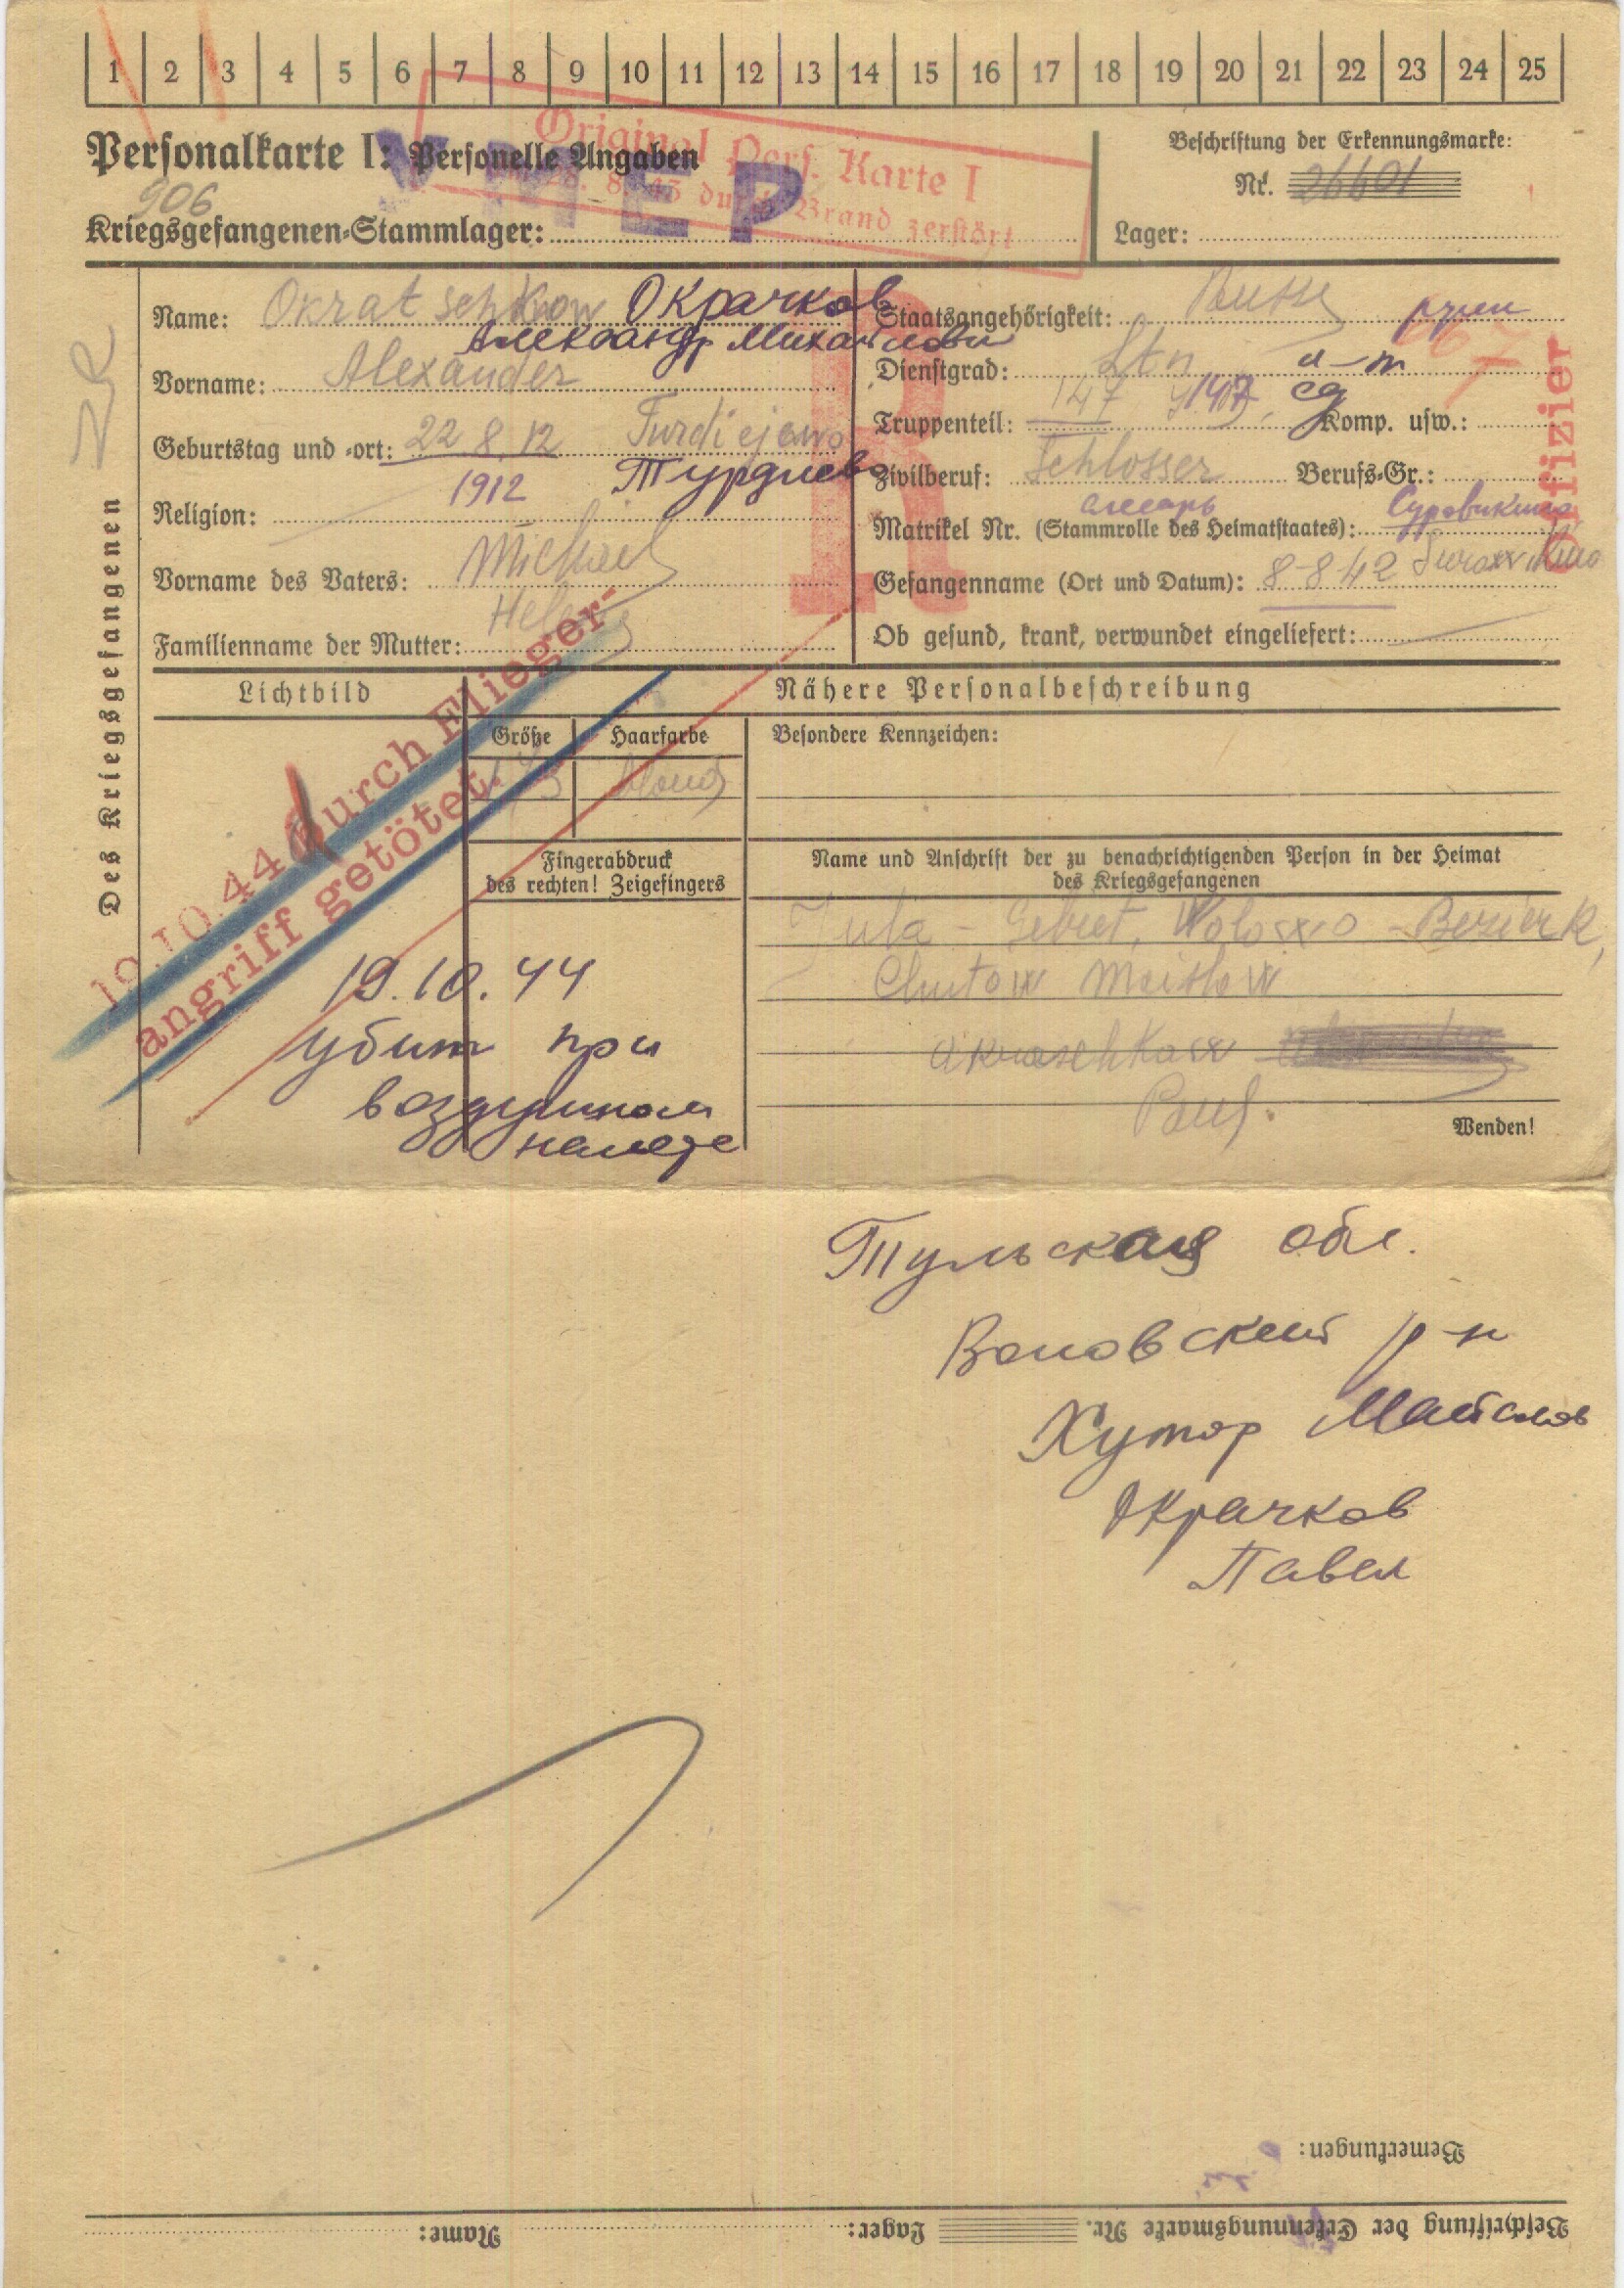 1 2 3 4 5 6 7 8 9 10 11 12 13 14 15 16 17 18 19 20 21 22 23 24 25
Personalkarte I: Personelle Angaben
Original Pers. Karte I
8. 43 durch Brand zerstört
УМЕР
906
Kriegsgefangenen-Stammlager:
Beschriftung der Erkennungsmarke:
Nr. 26601
Lager:
Des Kriegsgefangenen
Name: Okratschkow Окрачков
Александр Михайлович
Vorname: Alexander
Geburtstag und -ort: 22 8. 12 Turdiejewo
1912 Турдиево
Religion:
Vorname des Vaters: Michael
Familienname der Mutter: Helene
R
Offizier
Staatsangehörigkeit: Russe русск
Dienstgrad: Ltn л-т
Truppenteil: 147 147 сд Komp. usw.:
Zivilberuf: Schlosser Berufs-Gr.:
слесарь
Matrikel Nr. (Stammrolle des Heimatstaates): Суровикино
Gefangenname (Ort und Datum): 8-8 42 Surowikino
Ob gesund, krank, verwundet eingeliefert:
Lichtbild
Nähere Personalbeschreibung
Größe Haarfarbe Besondere Kennzeichen:
blond
Fingerabdruck
des rechten! Zeigefingers
Name und Anschrift der zu benachrichtigenden Person in der Heimat
des Kriegsgefangenen
Tula - Gebiet, Wolowo - Bezierk,
Chutow Maislow
Akraschkow
Paul.
Wenden!
19.10.44 durch Flieger-
angriff getötet.
19.10.44
убит при
воздушном
налете
Тульская обл.
Воловский р-н
Хутор Майслов
Окрачков
Павел
Bemerkungen:
Beschriftung der Erkennungsmarke Nr. Lager: Name: